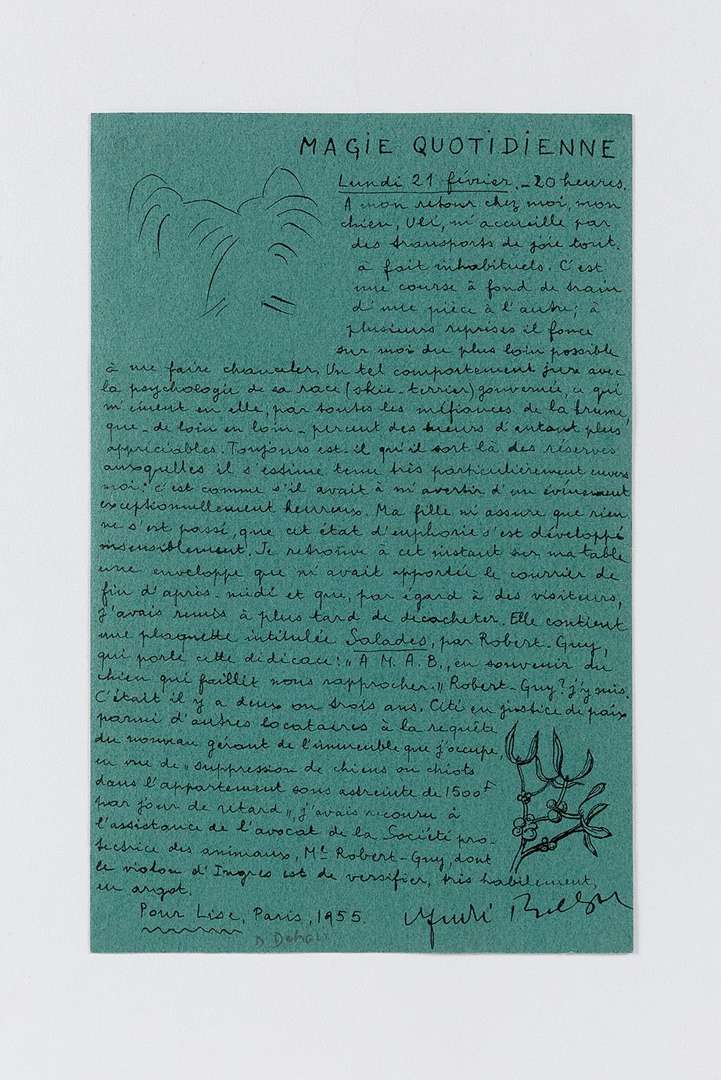 MAGIE QUOTIDIENNE
Lundi 21 février. – 20 heures.
A mon retour chez moi, mon
chien, Uli, m'accueille par
des transports de joie tout
à fait inhabituels. C'est
une course à fond de train
d'une pièce à l'autre ; à
plusieurs reprises il fonce
sur moi du plus loin possible
à me faire chanceler. Un tel comportement jure avec
la psychologie de sa race (skie-terrier) gouvernée, ce qui
m'émeut en elle, par toutes les méfiances de la brume,
que – de loin en loin – percent des lueurs d'autant plus
appréciables. Toujours est-il qu'il sort là des réserves
auxquelles il s'estime tenu très particulièrement envers
moi : c'est comme s'il avait à m'avertir d'un événement
exceptionnellement heureux. Ma fille m'assure que rien
ne s'est passé, que cet état d'euphorie s'est développé
insensiblement. Je retrouve à cet instant sur ma table
une enveloppe que m'avait apportée le courrier de
fin d'après-midi et que, par égard à des visiteurs,
j'avais remis à plus tard de décacheter. Elle contient
une plaquette intitulée Salades, par Robert-Guy,
qui porte cette dédicace : „ A M. A. B., en souvenir du
chien qui faillit nous rapprocher. „ Robert-Guy ? j'y suis.
C'était il y a deux ou trois ans. Cité en justice de paix
parmi d'autres locataires à la requête
du nouveau gérant de l'immeuble que j'occupe,
en vue de „ suppression de chiens ou chiots
dans l'appartement sous astreinte de 1500F
par jour de retard „, j'avais recouru à
l'assistance de l'avocat de la Société pro-
tectrice des animaux, Me Robert-Guy, dont
le violon d'Ingres est de versifier, très habilement,
en argot.
Pour Lise, Paris, 1955. André Breton